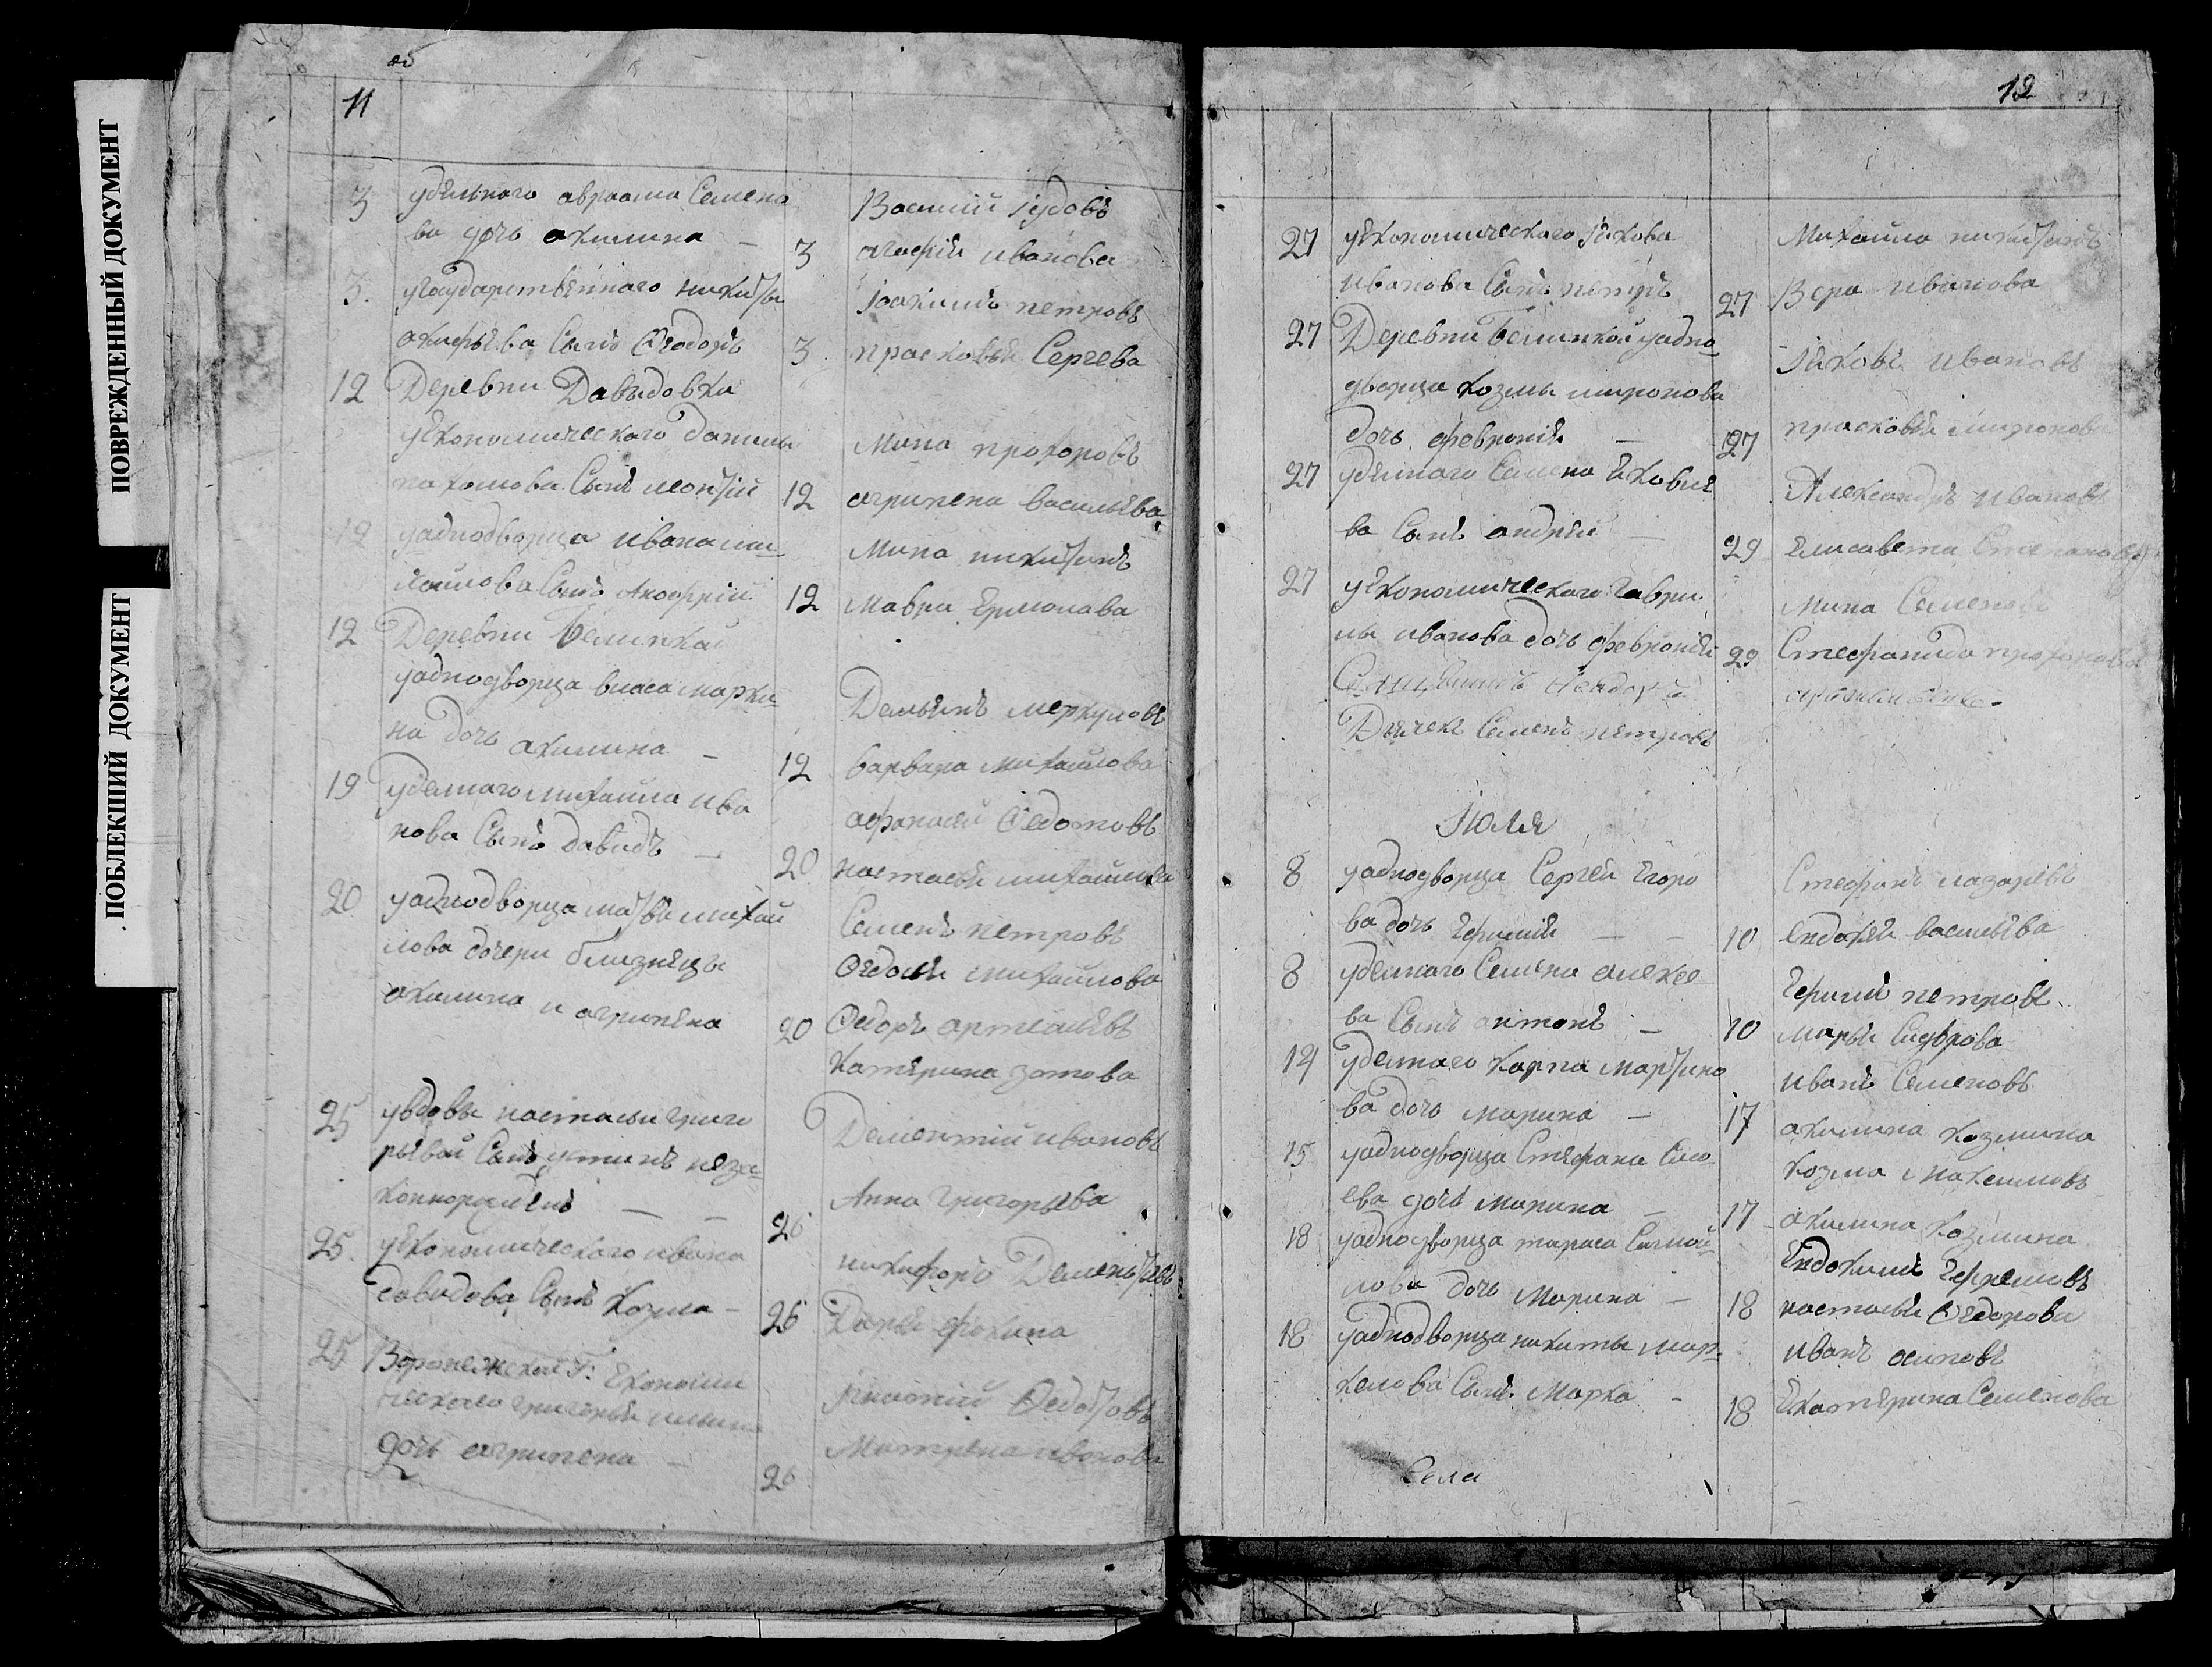 ПОВРЕЖДЕННЫЙ ДОКУМЕНТ
ПОБЛЕКШИЙ ДОКУМЕНТ
11
3 удѣльнаго авраама Семено
ва дочь акилина —
3 Василий Іудовъ
агафія иванова
3. угосударственнаго никиты
акифьева Сынъ Ѳеодоръ
3. Іоакимъ петровъ
прасковья Сергева
12 Деревни Давыдовки
уекономическаго данилы
пахомова Сынъ леонтій
12 Мина прохоровъ
агрипена васильева
12 уаднодворца ивана ми-
хайлова Сынъ
12 Мина никитинъ
Мавра Ермолава
12 Деревни
уаднодворца власа марки-
на дочь акилина —
12 Демьянъ меркуловъ
варвара михайлова
19 уделнаго михаила ива
нова Сынъ давидъ —
20 афанасей Ѳедотовъ
настасья михайлова
20 уаднодворца матвея михай
лова дочери близнецы
акилина и агрипена
Семенъ петровъ
Ѳедосья михайлова
20 Ѳедоръ артемьевъ
Катерина зотова
25 увдовы настасьи григо
рьевой Сынъ устинъ неза-
коннорожденъ — —
26 Дементий ивановъ
Анна григорьева
25. уекономическаго ивана
давыдова Сынъ Козма —
26 никифоръ Деменьтьевъ
Дарья фокина
25 Воронежской Г. Економи
ческаго григорья ильина
дочь агрипена —
26 Игнатий Ѳедотовъ
Матрена иванова
12
27 уекономическаго Якова
иванова Сынъ петръ
27 Михайла никитинъ
Вера иванова
27 Деревни уадно-
дворца козмы миронова
дочь феврония —
27 Яковъ ивановъ
прасковья миронова
27 уделнаго Семена Яковле
ва Сынъ андрей —
29 Александръ ивановъ
Елисавета Степанова
27 уекономическаго гаври
лы иванова дочь феврония
29 Мина Семеновъ
Стефанида
Священникъ
Дьячекъ Семенъ петровъ
Июля
8 уаднодворца Сергея Егоро
ва дочь Ефимия — —
10 Стефанъ лазаревъ
евдокея васильева
8 уделнаго Семена алексе
ва Сынъ антонъ —
10 Ефимий петровъ
марья Сидорова
14 уделнаго карпа мартино
ва дочь марина —
17 иванъ Семеновъ
акилина козмина
15 уаднодворца Стефана Сысо-
ева дочь марина —
17 козма максимовъ
акилина козмина
18 уаднодворца тараса Самой-
лова дочь Марина —
18 Евдокимъ Ефремовъ
настасья Ѳедорова
18 уаднодворца никиты мар-
келова Сынъ Марко —
18 иванъ осиповъ
Екатерина Семенова
Села